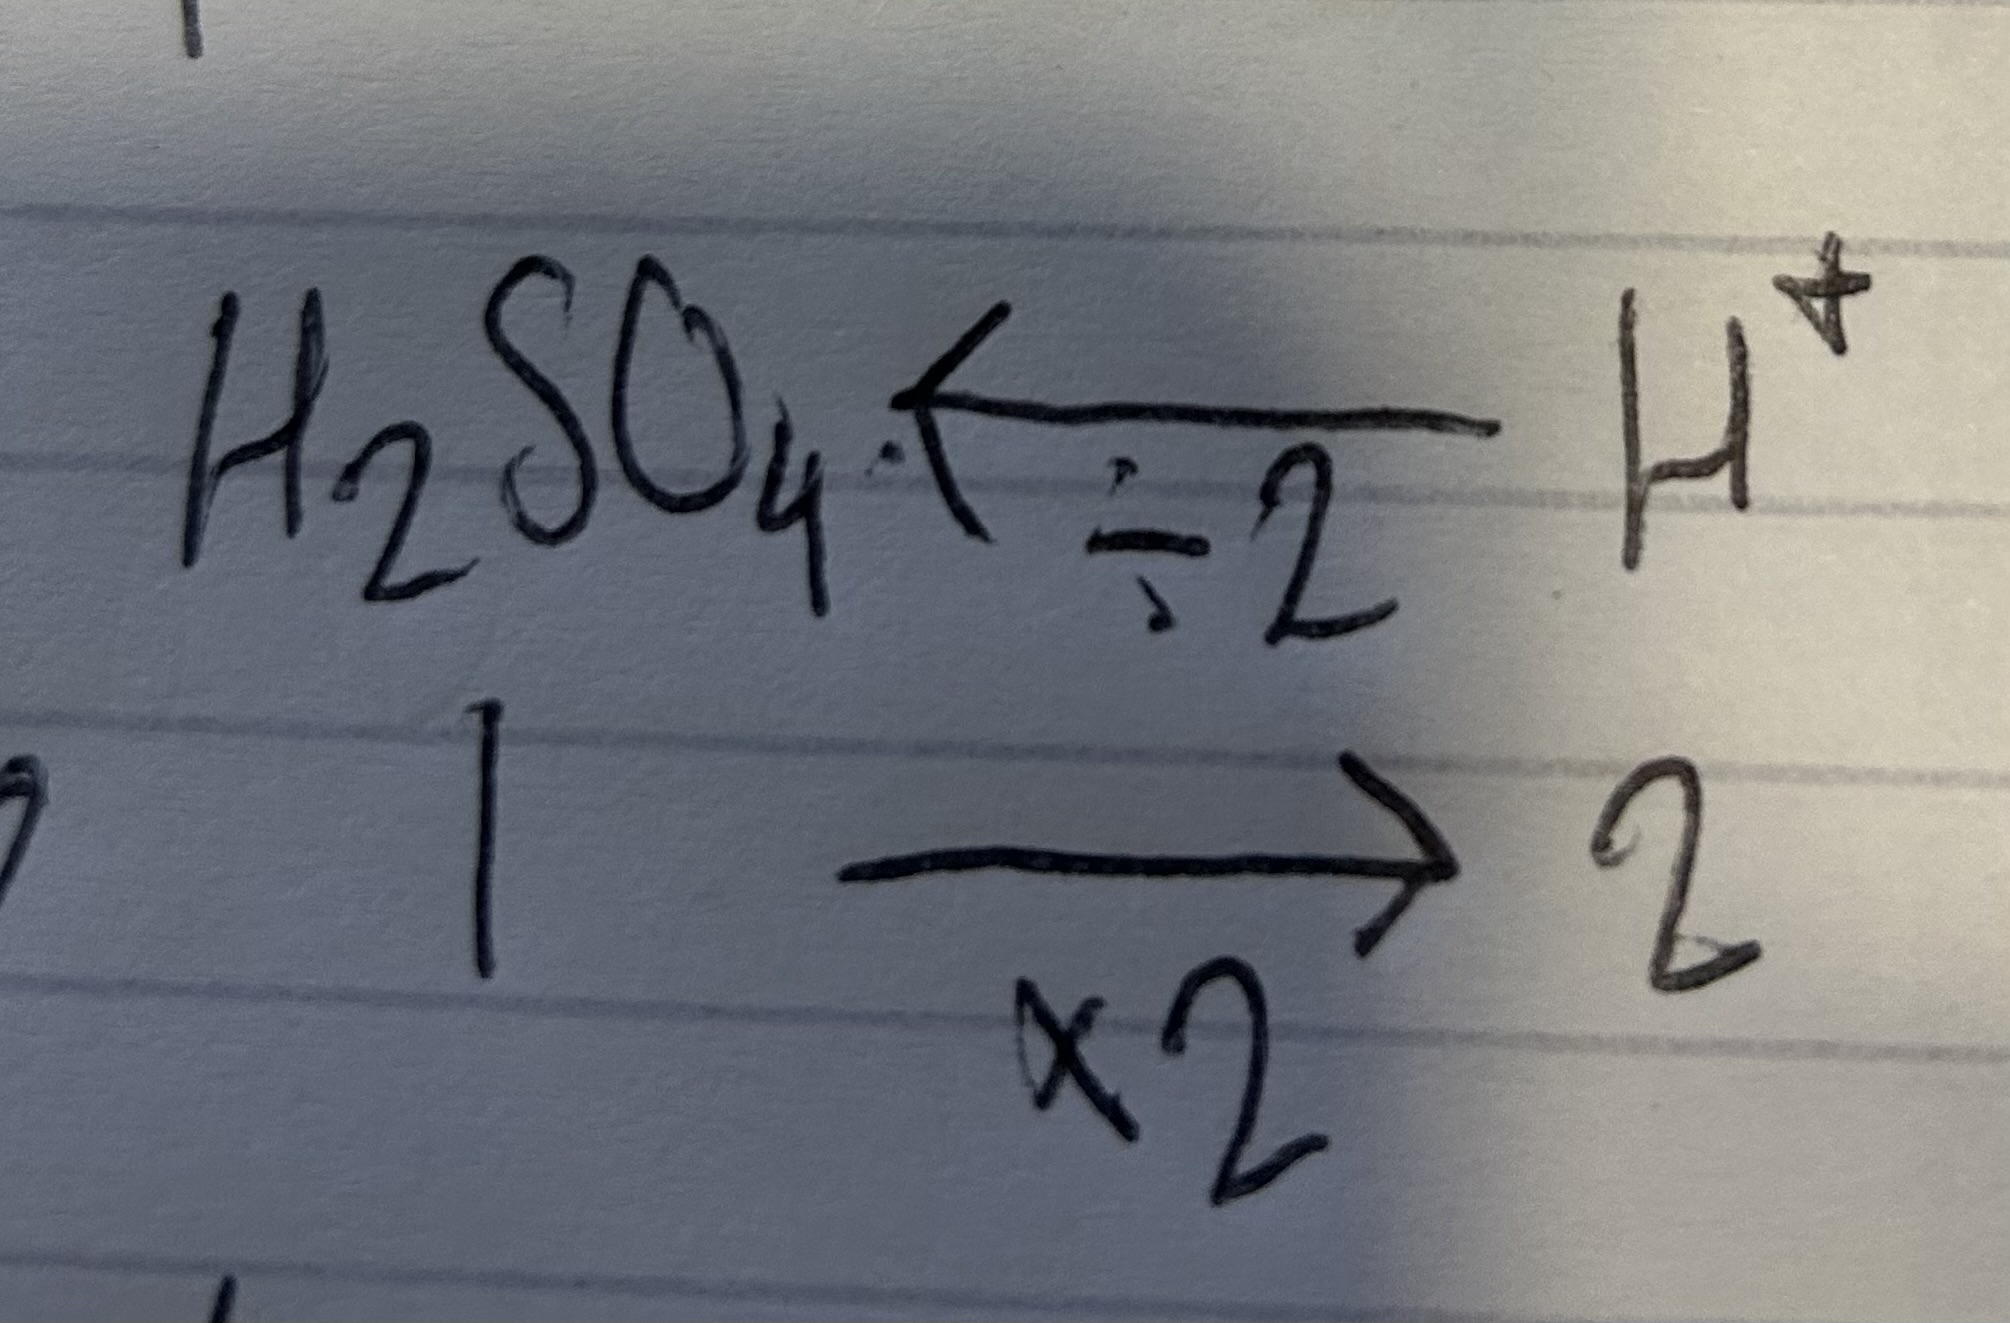 H₂SO₄ ← H⁺
÷2
1 → 2
×2